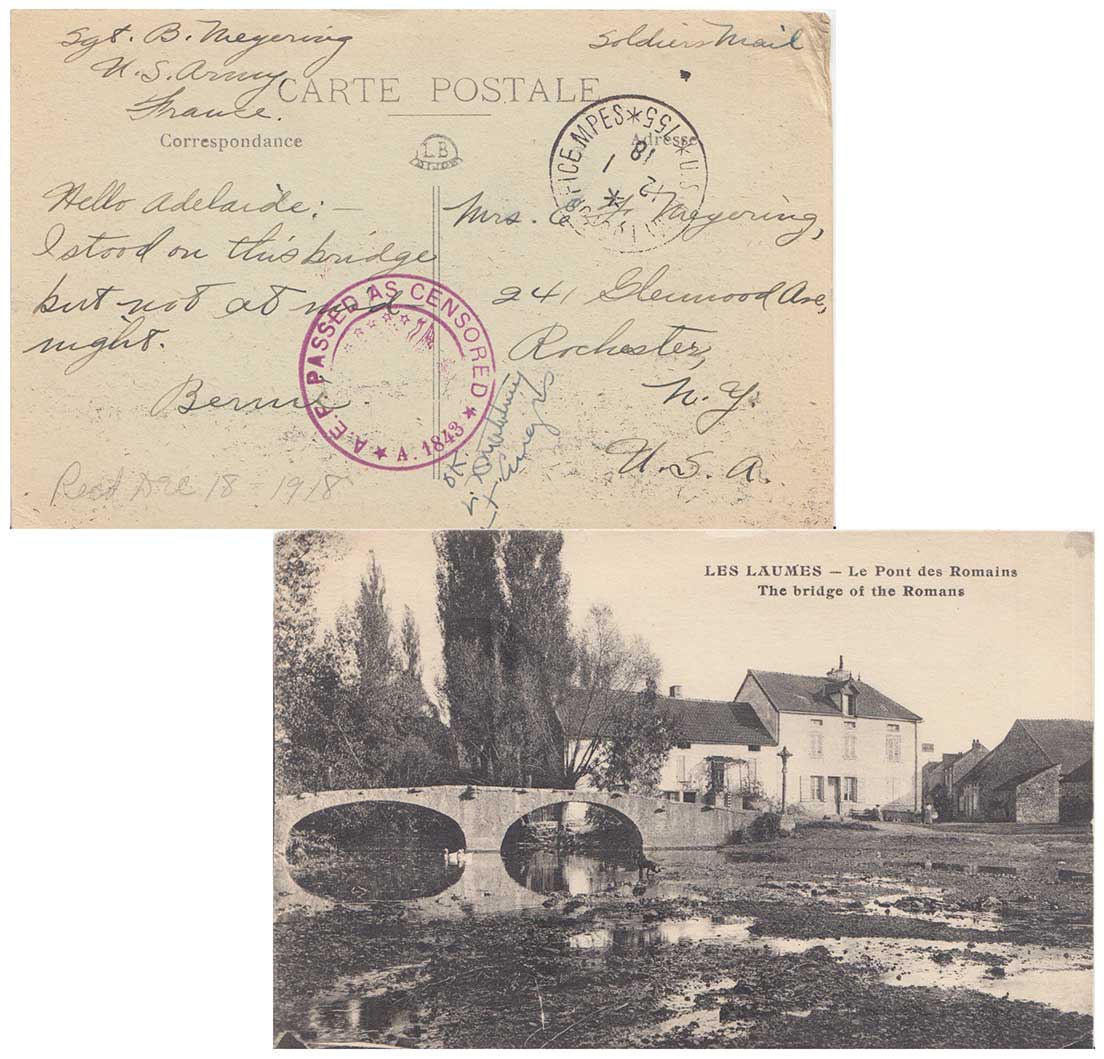 Sgt. B. Meyering
U.S. Army
France.
Soldiers Mail
CARTE POSTALE
Correspondance
Adresse
LB
DIJON
OFFICE MPES * 755 * U.S
1
18
Hello Adelaide:—
I stood on this bridge
but not at mid
night.
Bernie
Mrs. Meyering,
241 Glenwood Ave,
Rochester,
N.Y.
U.S.A.
A.E.F. PASSED AS CENSORED
★ A. 1843 ★
OK.
Recd Dec 18 - 1918
LES LAUMES — Le Pont des Romains
The bridge of the Romans